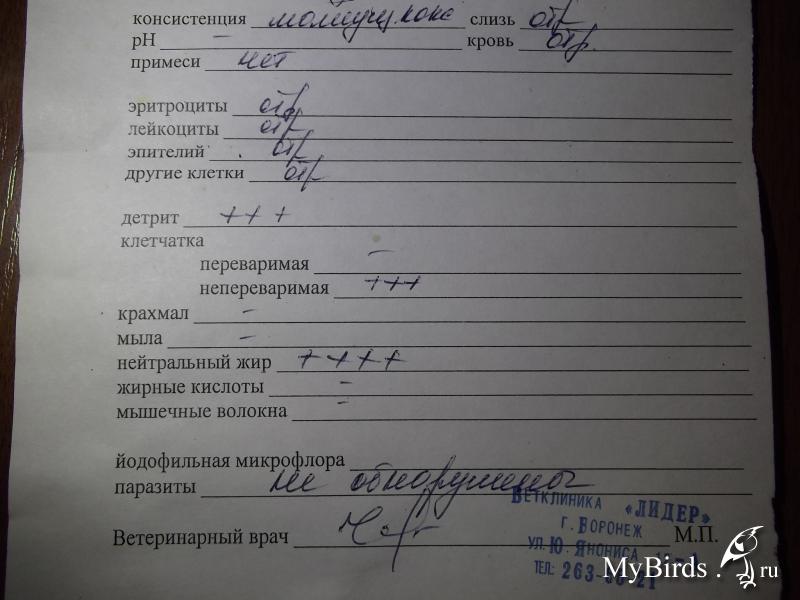 консистенция слизь отр
pH – кровь отр.
примеси нет
эритроциты отр
лейкоциты отр
эпителий отр
другие клетки отр
детрит +++
клетчатка
переваримая –
непереваримая +++
крахмал –
мыла –
нейтральный жир ++++
жирные кислоты –
мышечные волокна –
йодофильная микрофлора
паразиты не обнаружены
ВЕТКЛИНИКА «ЛИДЕР»
Ветеринарный врач М.П.
Г. ВОРОНЕЖ
УЛ. Ю. ЯНОНИСА
ТЕЛ: 263-
MyBirds.ru